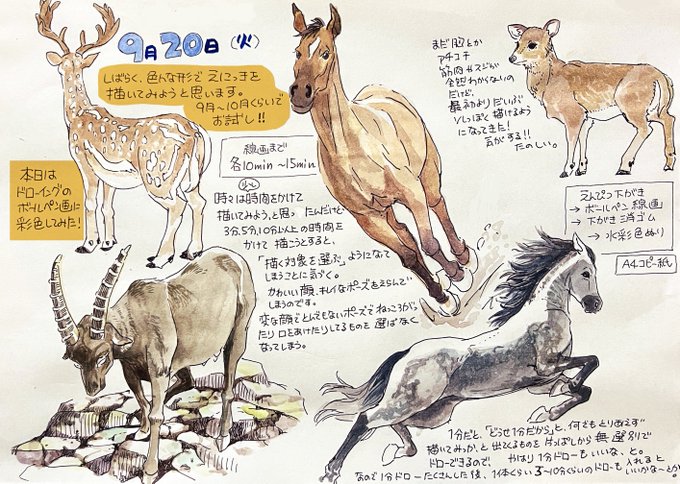 9月20日(火)
しばらく、色んな形で えにっきを
描いてみようと思います。
9月〜10月くらいで
お試し!!
本日は
ドローイングの
ボールペン画に
彩色してみた!
線画まで
各10min〜15min
時々は時間をかけて
描いてみよう、と思っ たんだけど
3分、5分、10分以上の時間を
かけて 描こうとすると、
「描く対象を選ぶ」ようになって
しまうことに気づく。
かわいい顔、キレイなポーズをえらんで
しまうのです。
変な顔でとんでもないポーズでねっころがっ
たり口をあけたりしてるものを 選ばなく
なってしまう。
まだ胸とか
アチコチ
筋肉やスジが
全然わからないの
だけど、
最初よりだいぶ
ソレっぽく描けるよう
になってきた!
気がする!!
たのしい。
えんぴつ下がき
→ ボールペン線画
→ 下がき消ゴム
→ 水彩色ぬり
A4コピー紙
1分だと、「どうせ1分だから」と、何でもとりあえず
描いてみっか、と出てくるものを片っぱしから無選別で
ドローできるので、 やはり1分ドローもいいな、と。
なので1分ドローたくさんした後、1体くらい3〜10分くらいのドローも入れると
いいかな〜とか。